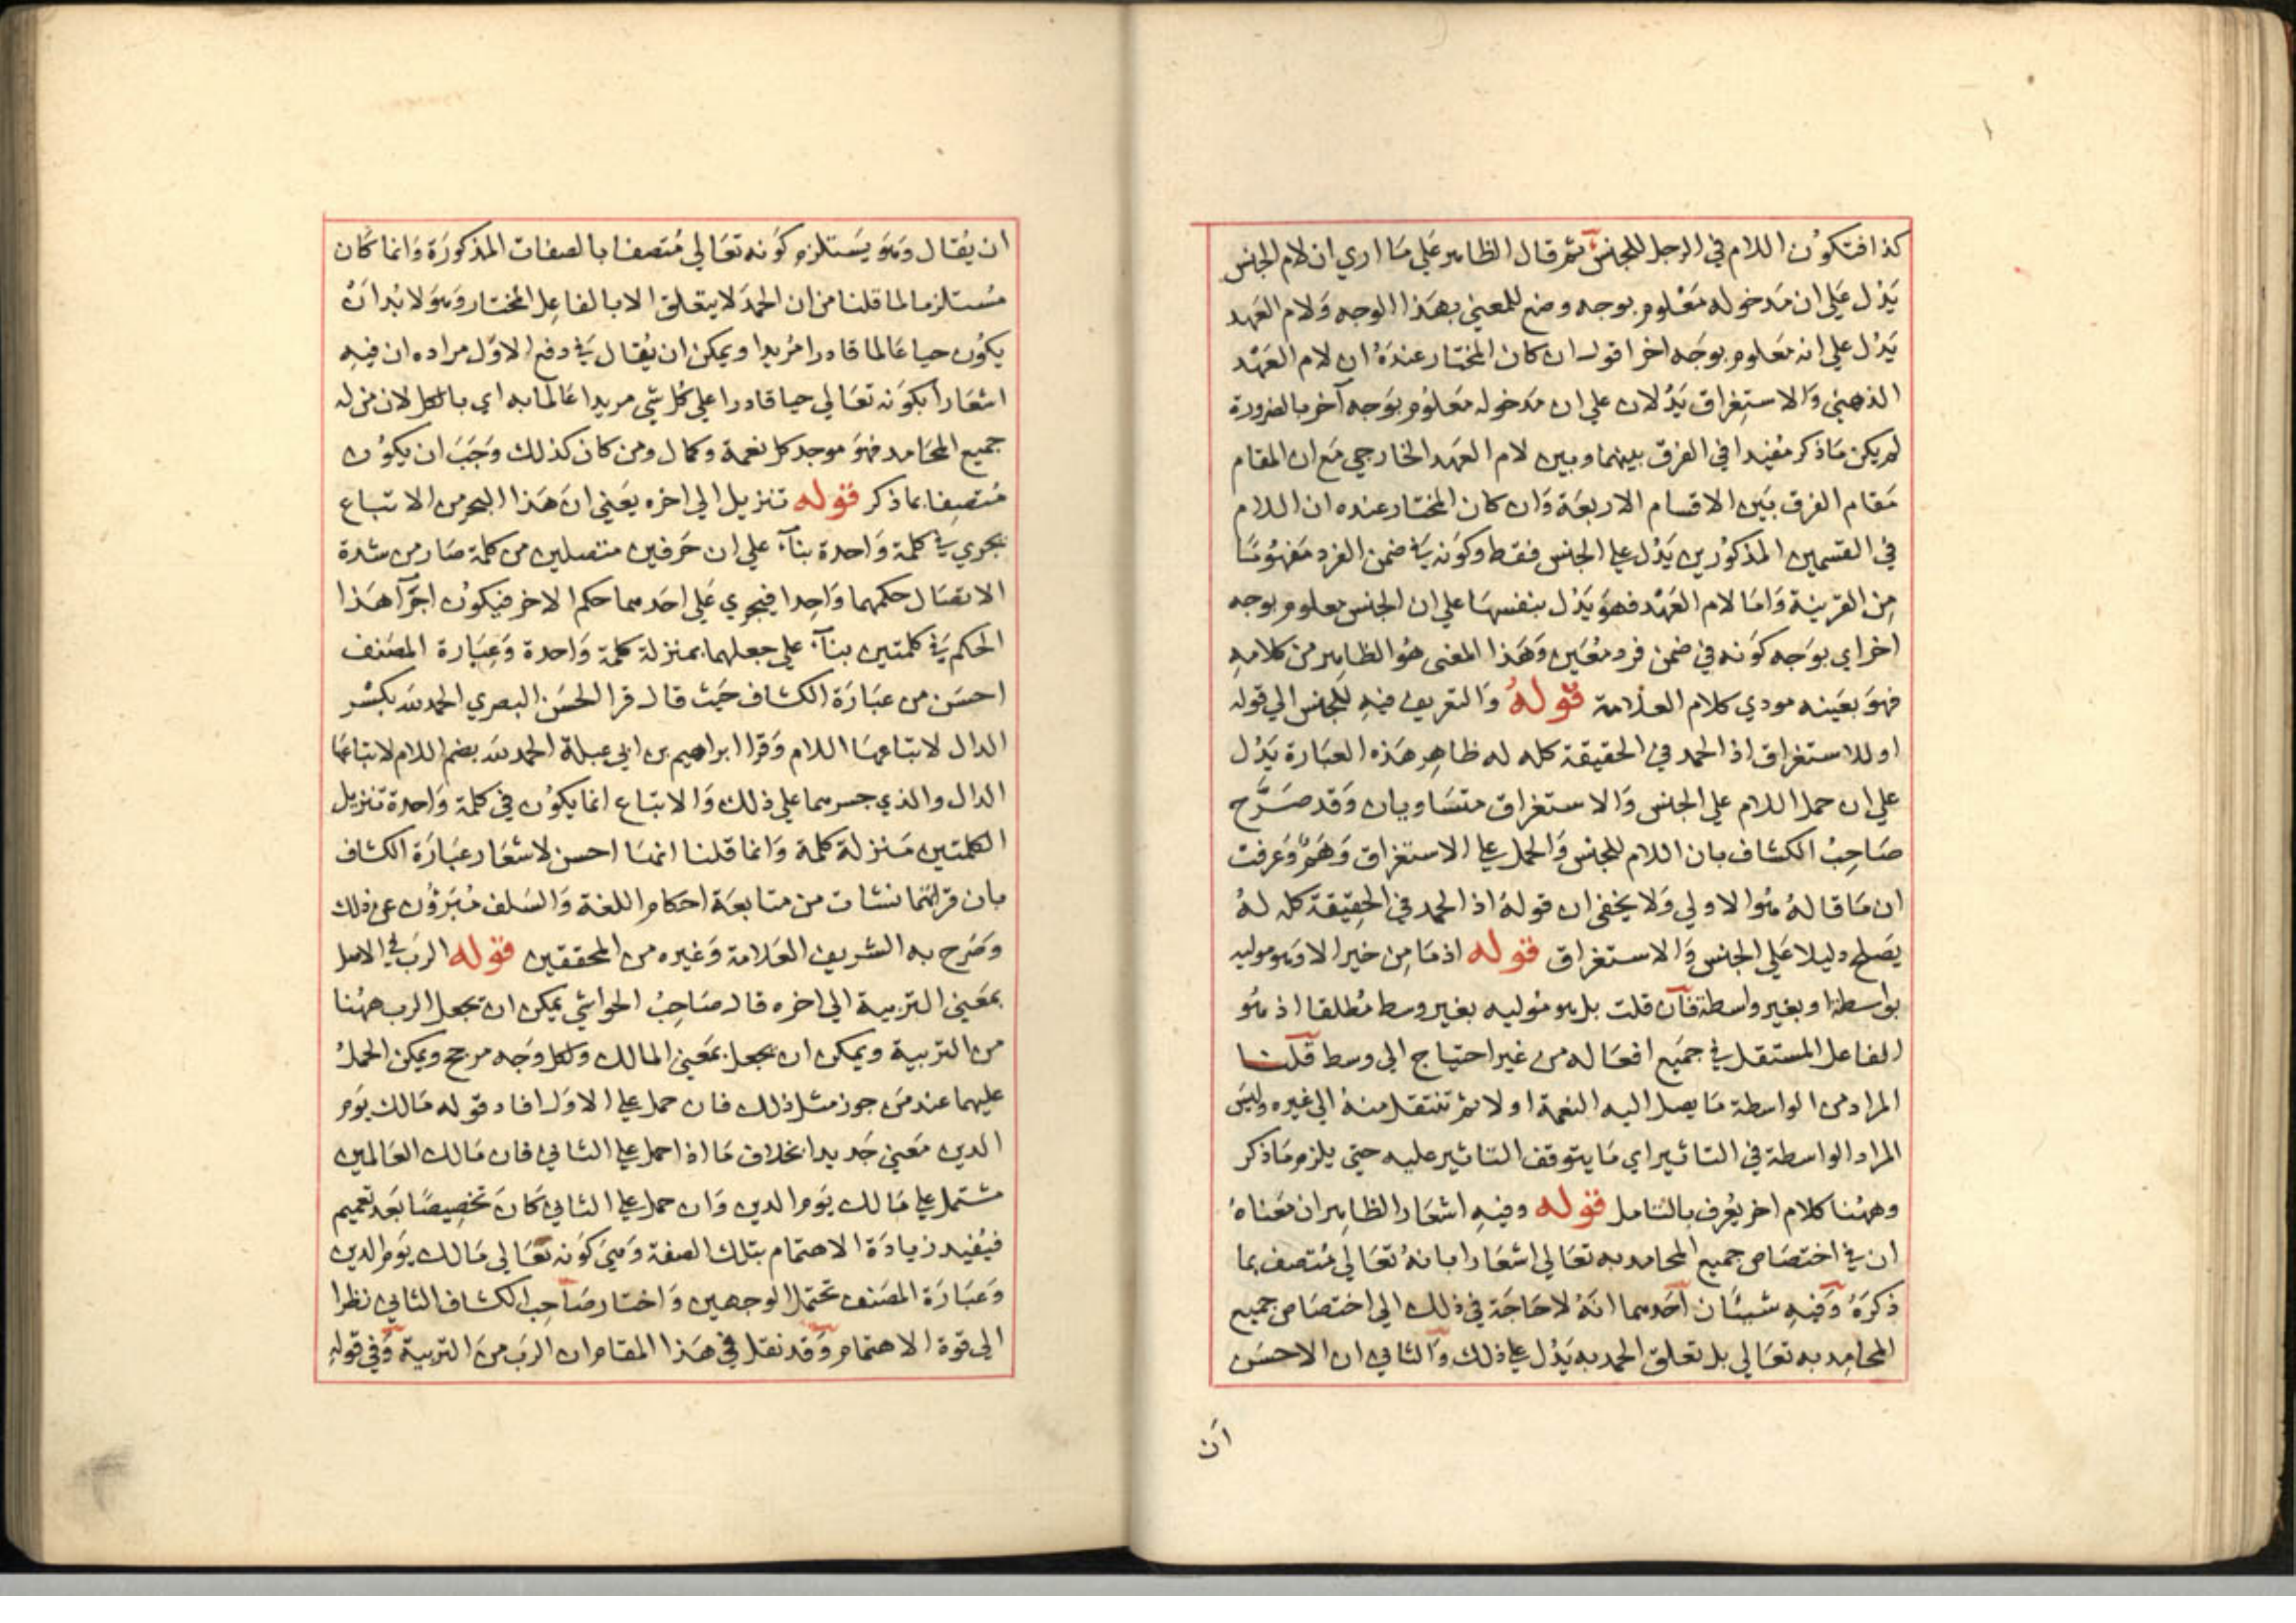 كذا فتكون اللام في الرجل للجنس ثم قال الظاهر علي ما اري ان لام الجنس
يدل علي ان مدخوله معلوم بوجه وضع للمعني بهذا الوجه ولام العهد
يدل علي انه معلوم بوجه اخر اقول ان كان المختار عنده ان لام العهد
الذهني والاستغراق يدلان علي ان مدخوله معلوم بوجه آخر بالضرورة
لم يكن ما ذكر مفيدا في الفرق بينهما وبين لام العهد الخارجي مع ان المقام
مقام الفرق بين الاقسام الاربعة وان كان المختار عنده ان اللام
في القسمين المذكورين يدل علي الجنس فقط وكونه في ضمن الفرد مفهوما
من القرينة واما لام العهد فهو يدل بنفسها علي ان الجنس معلوم بوجه
اخر اي بوجه كونه في ضمن فرد معين وهذا المعنى هو الظاهر من كلامه
فهو بعينه مودي كلام العلامة قوله والتعريف فيه للجنس الي قوله
او للاستغراق اذ الحمد في الحقيقة كله له ظاهر هذه العبارة يدل
علي ان حمل اللام علي الجنس والاستغراق متساويان وقد صرح
صاحب الكشاف بان اللام للجنس والحمل علي الاستغراق وهم وعرفت
ان ما قاله هو الاولي ولا يخفى ان قوله اذ الحمد في الحقيقة كله له
يصلح دليلا علي الجنس والاستغراق قوله اذ ما من خير الا وهو موليه
بواسطة او بغير واسطة فان قلت بل هو موليه بغير وسط مطلقا اذ هو
الفاعل المستقل في جميع افعاله من غير احتياج الى وسط قلنا
المراد من الواسطة ما يصل اليه النعمة اولا ثم تنتقل منه الي غيره وليس
المراد الواسطة في التاثير اي ما يتوقف التاثير عليه حتي يلزم ما ذكر
وههنا كلام اخر يعرف بالتامل قوله وفيه اشعار الظاهر ان معناه
ان في اختصاص جميع المحامد به تعالي اشعارا بانه تعالي متصف بما
ذكره وفيه شيئان احدهما انه لا حاجة في ذلك الي اختصاص جميع
المحامد به تعالي بل تعلق الحمد به يدل علي ذلك والثاني ان الاحسن
ان
ان يقال وهو يستلزم كونه تعالي متصفا بالصفات المذكورة وانما كان
مستلزما لما قلنا من ان الحمد لا يتعلق الا بالفاعل المختار وهو لا بد ان
يكون حيا عالما قادرا مريدا ويمكن ان يقال في دفع الاول مراده ان فيه
اشعارا بكونه تعالي حيا قادرا علي كل شي مريدا عالما به اي بالكل لان من له
جميع المحامد فهو موجد كل نعمة وكمال ومن كان كذلك وجب ان يكون
متصفا بما ذكر قوله تنزيل الي اخره يعني ان هذا البحر من الاتباع
يجري في كلمة واحدة بنآء علي ان حرفين متصلين من كلمة صار من شدة
الاتصال حكمهما واحدا فيجري علي احدهما حكم الاخر فيكون اجرآ هذا
الحكم في كلمتين بنآء علي جعلهما بمنزلة كلمة واحدة وعبارة المصنف
احسن من عبارة الكشاف حيث قال قرا الحسن البصري الحمد لله بكسر
الدال لاتباعها اللام وقرا ابراهيم بن ابي عبلة الحمد لله بضم اللام لاتباعها
الدال والذي جسرهما علي ذلك والاتباع انما يكون في كلمة واحدة تنزيل
الكلمتين منزلة كلمة وانما قلنا انها احسن لاشعار عبارة الكشاف
بان قراتهما نشات من متابعة احكام اللغة والسلف مبرؤن عن ذلك
وصرح به الشريف العلامة وغيره من المحققين قوله الرب في الاصل
بمعني التربية الي اخره قال صاحب الحواشي يمكن ان يجعل الرب ههنا
من التربية ويمكن ان يجعل بمعني المالك ولكل وجه مرجح ويمكن الحمل
عليهما عند من جوز مثل ذلك فان حمل علي الاول افاد قوله مالك يوم
الدين معني جديدا بخلاف ما اذا حمل علي الثاني فان مالك العالمين
مشتمل علي مالك يوم الدين وان حمل علي الثاني كان تخصيصا بعد تعميم
فيفيد زيادة الاهتمام بتلك الصفة وهي كونه تعالي مالك يوم الدين
وعبارة المصنف تحتمل الوجهين واختار صاحب الكشاف الثاني نظرا
الى قوة الاهتمام وقد نقل في هذا المقام ان الرب من التربية وفي قوله